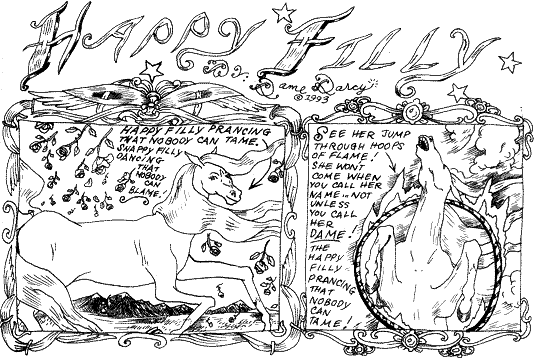 HAPPY FILLY
By: Dame Darcy
© 1993
HAPPY FILLY PRANCING
THAT NOBODY CAN TAME.
SNAPPY FILLY
DANCING
THAT
NOBODY
CAN
BLAME!
SEE HER JUMP
THROUGH HOOPS
OF FLAME!
SHE WONT
COME WHEN
YOU CALL HER
NAME... NOT
UNLESS
YOU CALL
HER
DAME!
THE
HAPPY
FILLY
PRANCING
THAT
NOBODY
CAN
TAME!